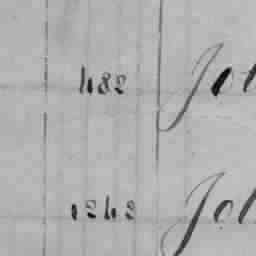 482 Joh
1242 Joh